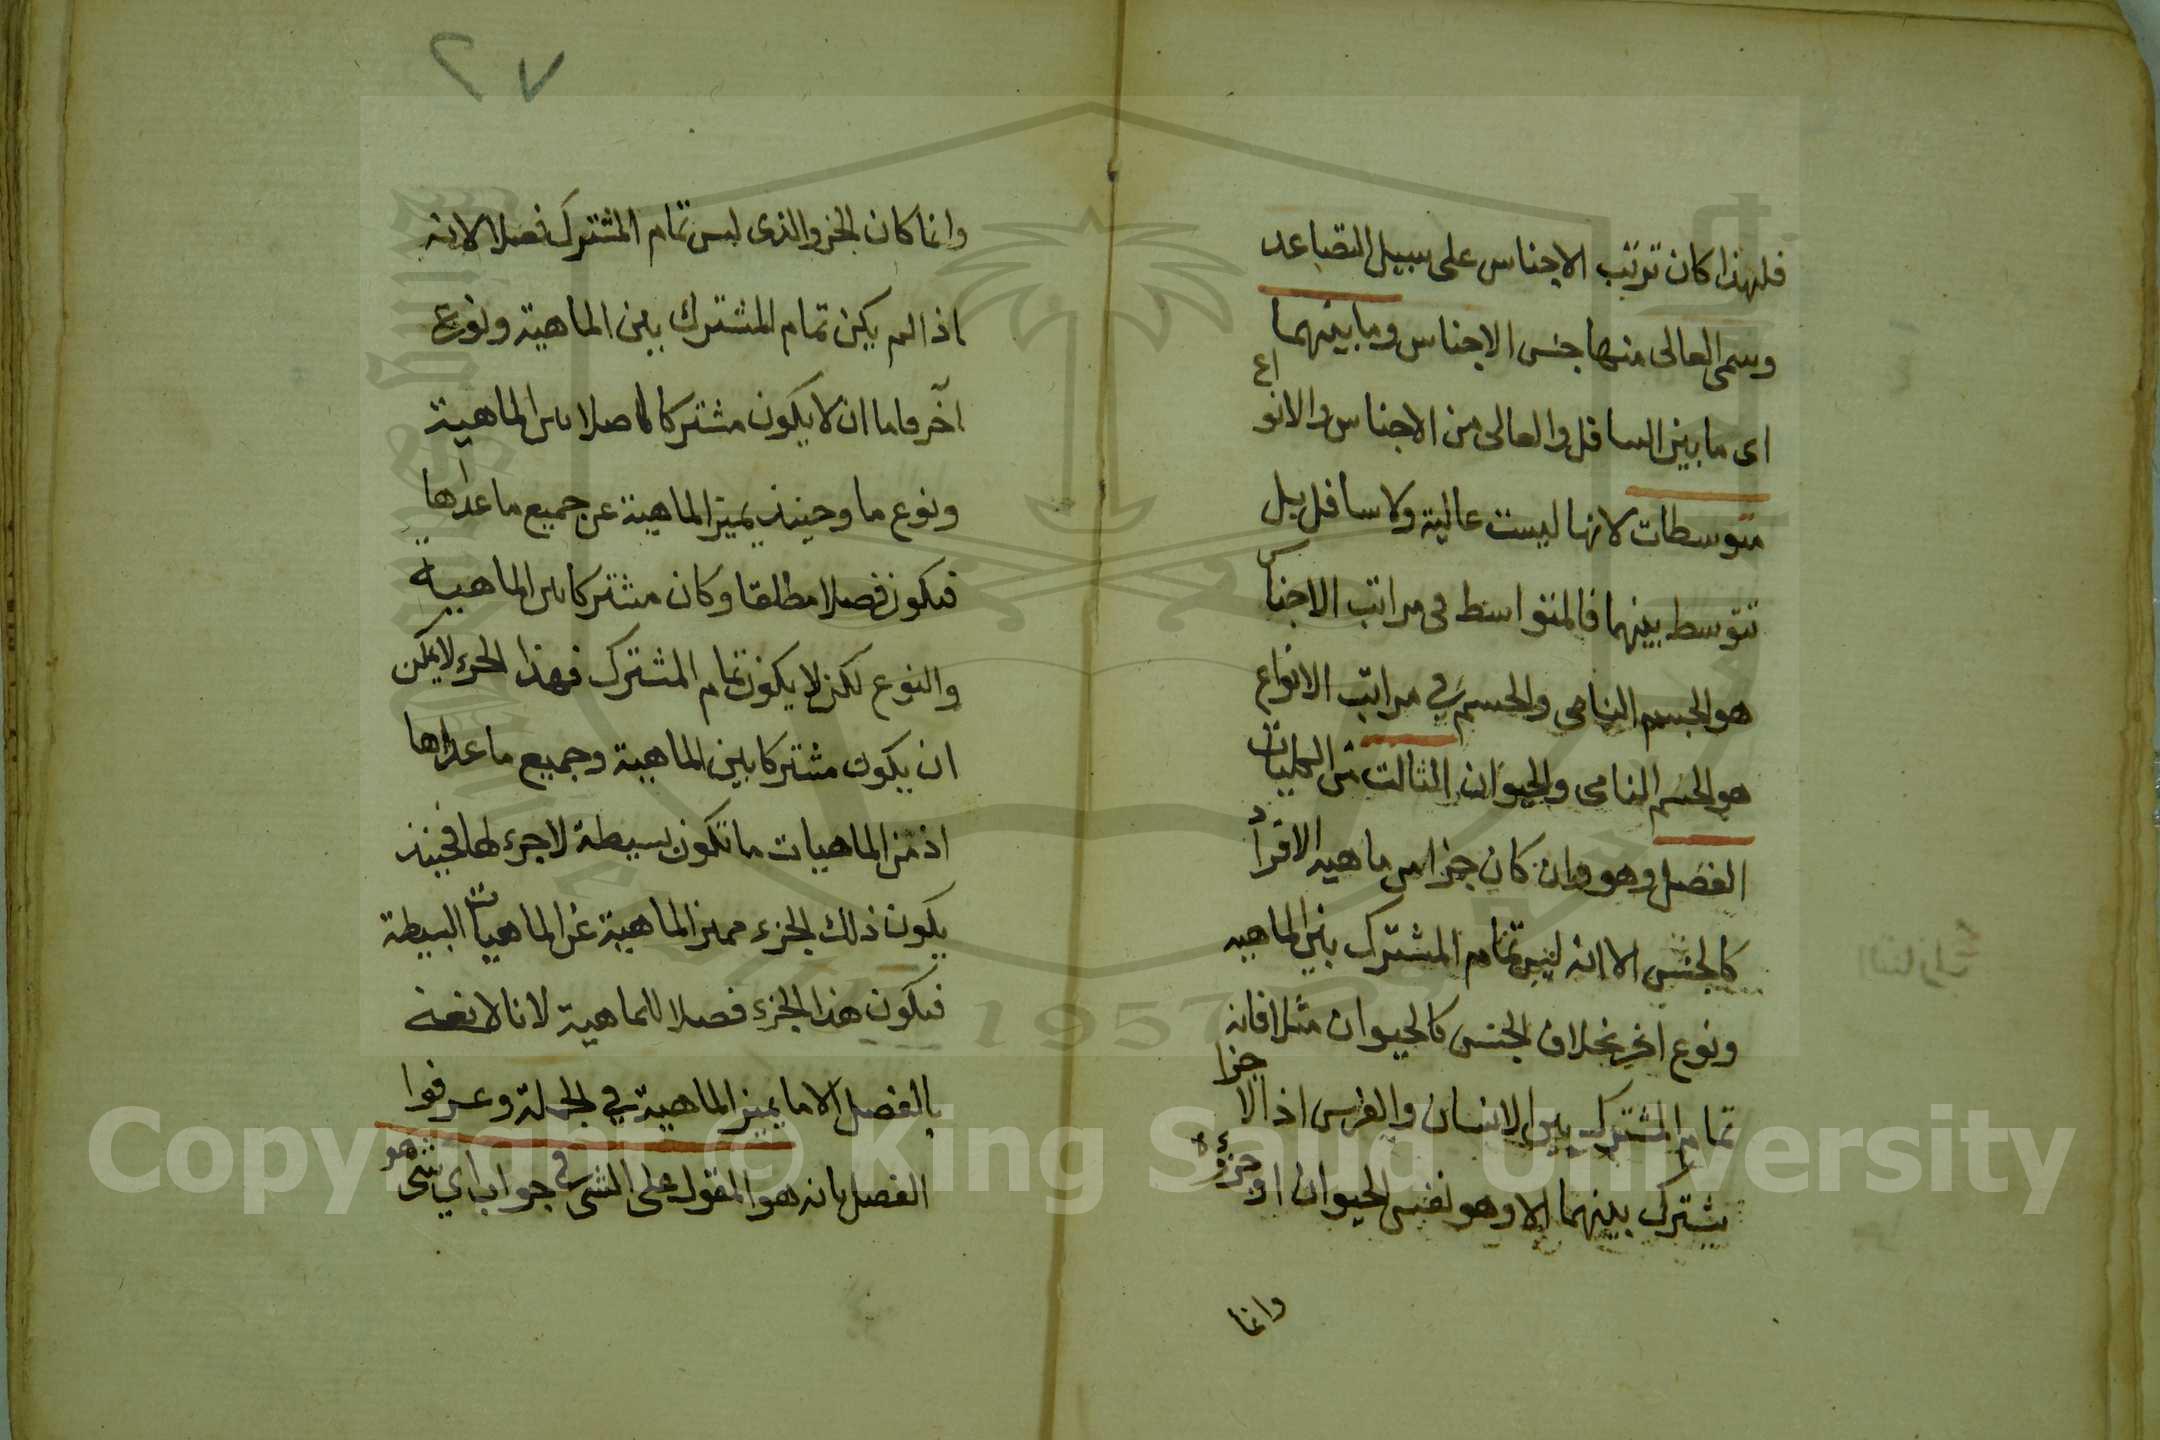 فلهذا كان ترتب الاجناس على سبيل التصاعد
وسمى العالى منها جنس الاجناس وما بينهما
اى ما بين السافل والعالى من الاجناس والانواع
متوسطات لانها ليست عالية ولا سافل بل
تتوسط بينهما فالمتواسط فى مراتب الاجناس
هو الجسم النامى والجسم فى مراتب الانواع
هو الجسم النامى والحيوان الثالث من الكليات
الفصل وهو وان كان جزا من ماهيه الافراد
كالجنس الا انه ليس تمام المشترك بين الماهيه
ونوع اخر بخلاف الجنس كالحيوان مثلا فانه
تمام المشترك بين الانسان والفرس اذ لا جزا
يشترك بينهما الا وهو نفس الحيوان او جزؤه
وانما
٢٧
وانما كان الجزو الذى ليس تمام المشترك فصلا لانه
اذا لم يكن تمام المشترك بين الماهية ونوع
آخر فاما ان لا يكون مشتركا اصلا بين الماهية
ونوع ما وحينئذ يميز الماهية عن جميع ما عداها
فيكون فصلا مطلقا وكان مشتركا بين الماهية
والنوع لكن لا يكون تمام المشترك فهذا الجزء لا يمكن
ان يكون مشتركا بين الماهية وجميع ما عداها
اذ من الماهيات ما تكون بسيطة لا جزء لها فحينئذ
يكون ذلك الجزء مميز الماهية عن الماهيات البسيطة
فيكون هذا الجزء فصلا للماهية لانا لا نعنى
بالفصل الا ما يميز الماهية في الجملة وعرفوا
الفصل بانه هو المقول على الشى في جواب اي شى هو
1957
Copyright © King Saud University